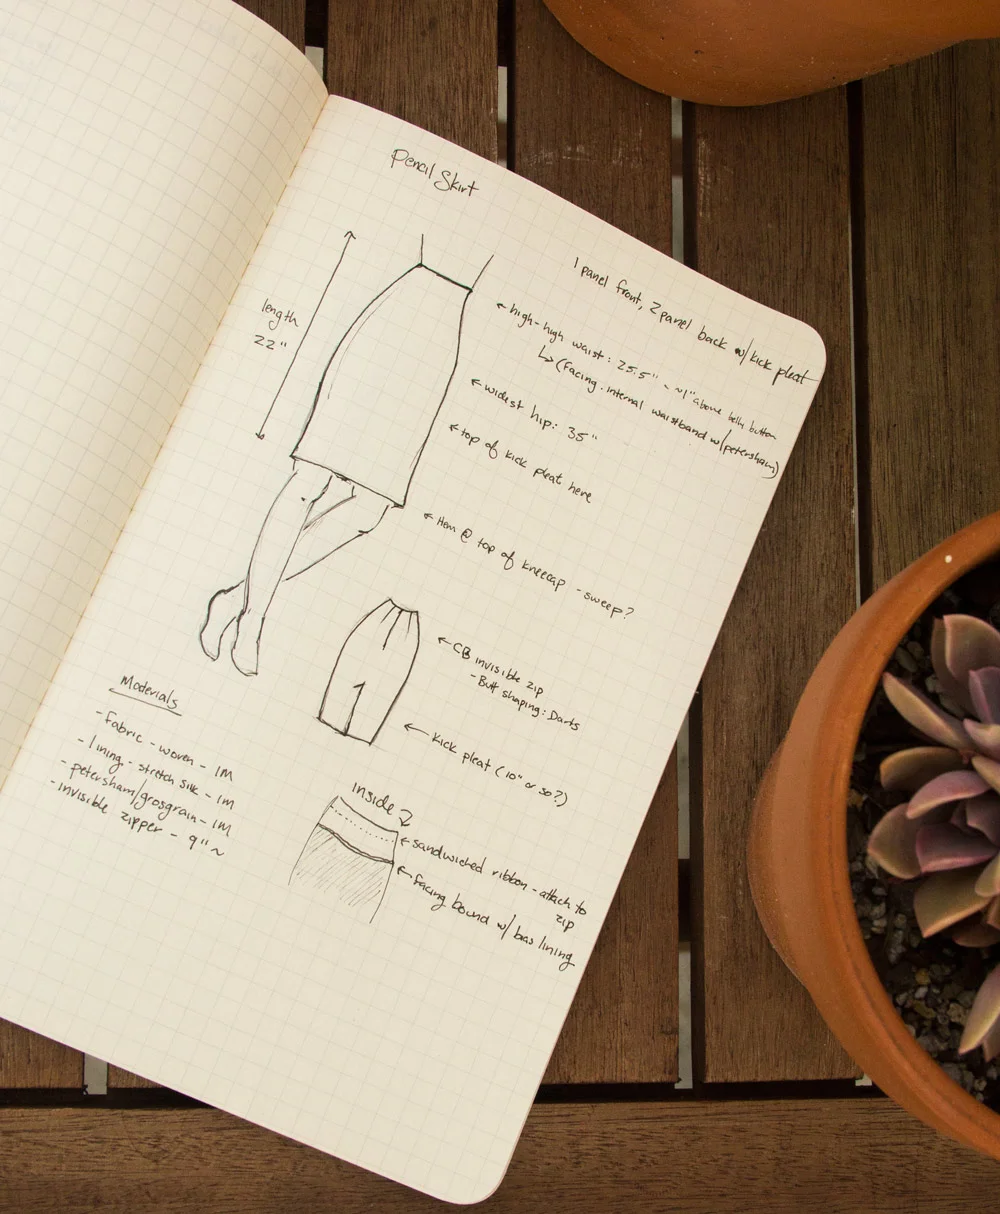 Pencil Skirt
1 panel front, 2 panel back w/ kick pleat
length
22"
← high-high waist: 25.5" ~ ~1" above belly button
↳ (Facing. internal waistband w/petersham)
← widest hip: 35"
← top of kick pleat here
← Hem @ top of kneecap - sweep?
← CB invisible zip
- Butt shaping: Darts
← kick pleat (10" or so?)
Materials
- Fabric - woven - 1M
- lining - stretch silk - 1M
- petersham/grosgrain - 1M
- invisible zipper - 9" ~
inside
← sandwiched ribbon - attach to
zip
← facing bound w/ bias lining